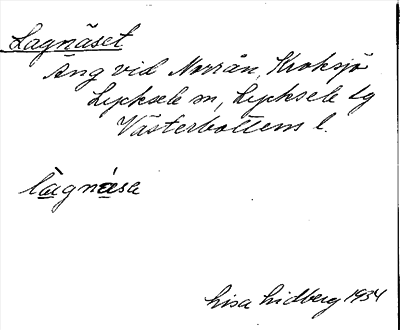 Lagnäset
Äng vid Norrån, Kroksjö
Lycksele sn, Lycksele lg
Västerbottens l.
lagnäsa
Lisa Lidberg 1934